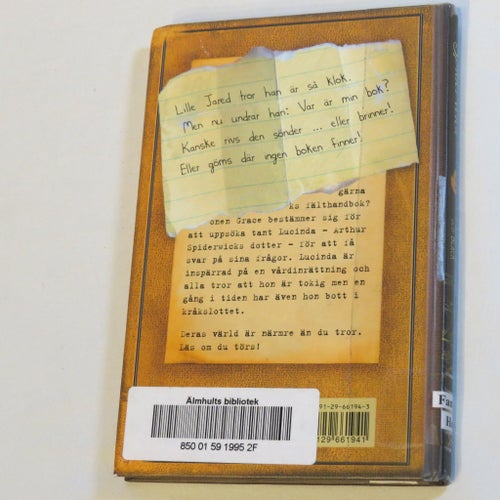 Lille Jared tror han är så klok.
Men nu undrar han: Var är min bok?
Kanske rivs den sönder ... eller brinner!
Eller göms där ingen boken finner!
gärna
ks fälthandbok?
onen Grace bestämmer sig för
att uppsöka tant Lucinda - Arthur
Spiderwicks dotter - för att få
svar på sina frågor. Lucinda är
inspärrad på en vårdinrättning och
alla tror att hon är tokig men en
gång i tiden har även hon bott i
kråkslottet.
Deras värld är närmre än du tror.
Läs om du törs!
Älmhults bibliotek
850 01 59 1995 2F
91-29-66194-3
129 661941